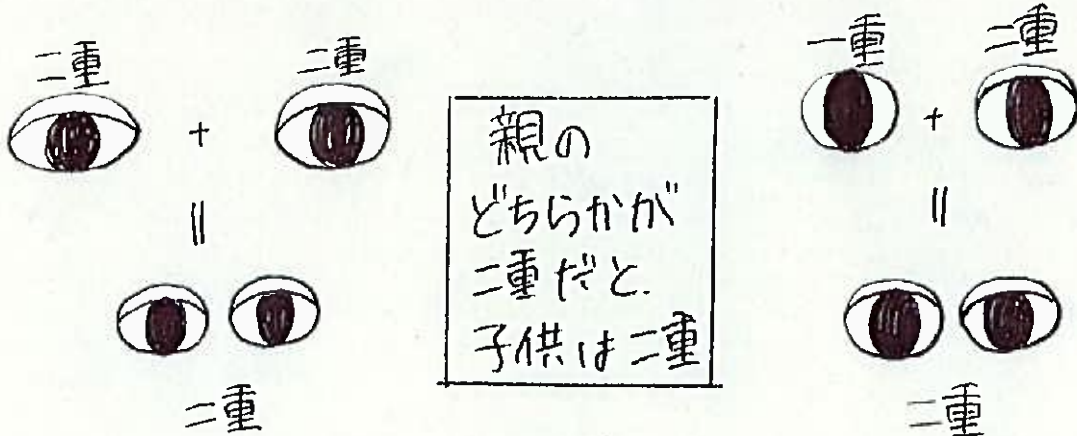 二重
+
二重
=
二重
親の
どちらかが
二重だと、
子供は二重
一重
+
二重
=
二重